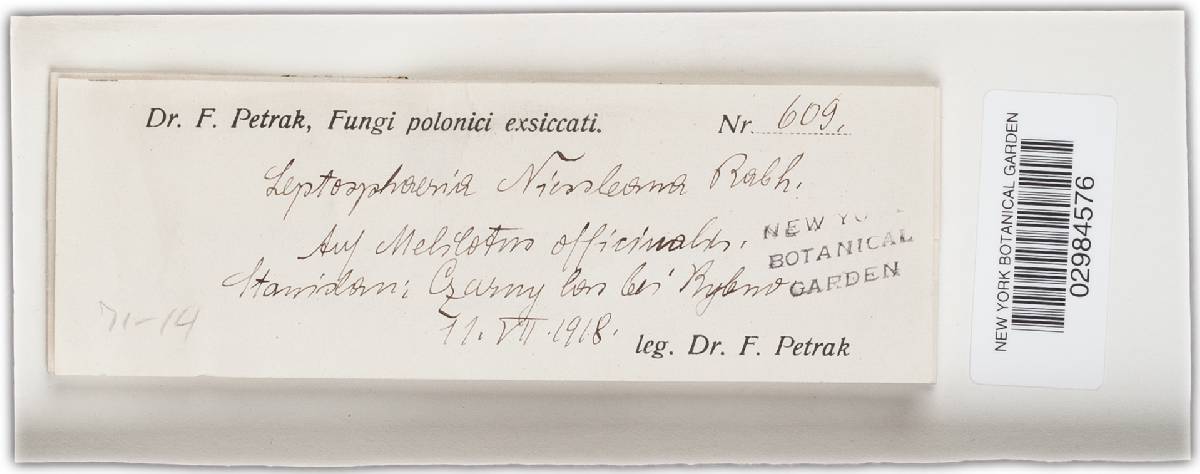 Dr. F. Petrak, Fungi polonici exsiccati.
Nr. 609.
Leptosphaeria Niessleana Rabh.
Auf Melilotus officinalis.
Stanislau: Czarny las bei Rybno
11. VII. 1918.
leg. Dr. F. Petrak
NEW YO
BOTANICAL
GARDEN
71-14
NEW YORK BOTANICAL GARDEN
02984576